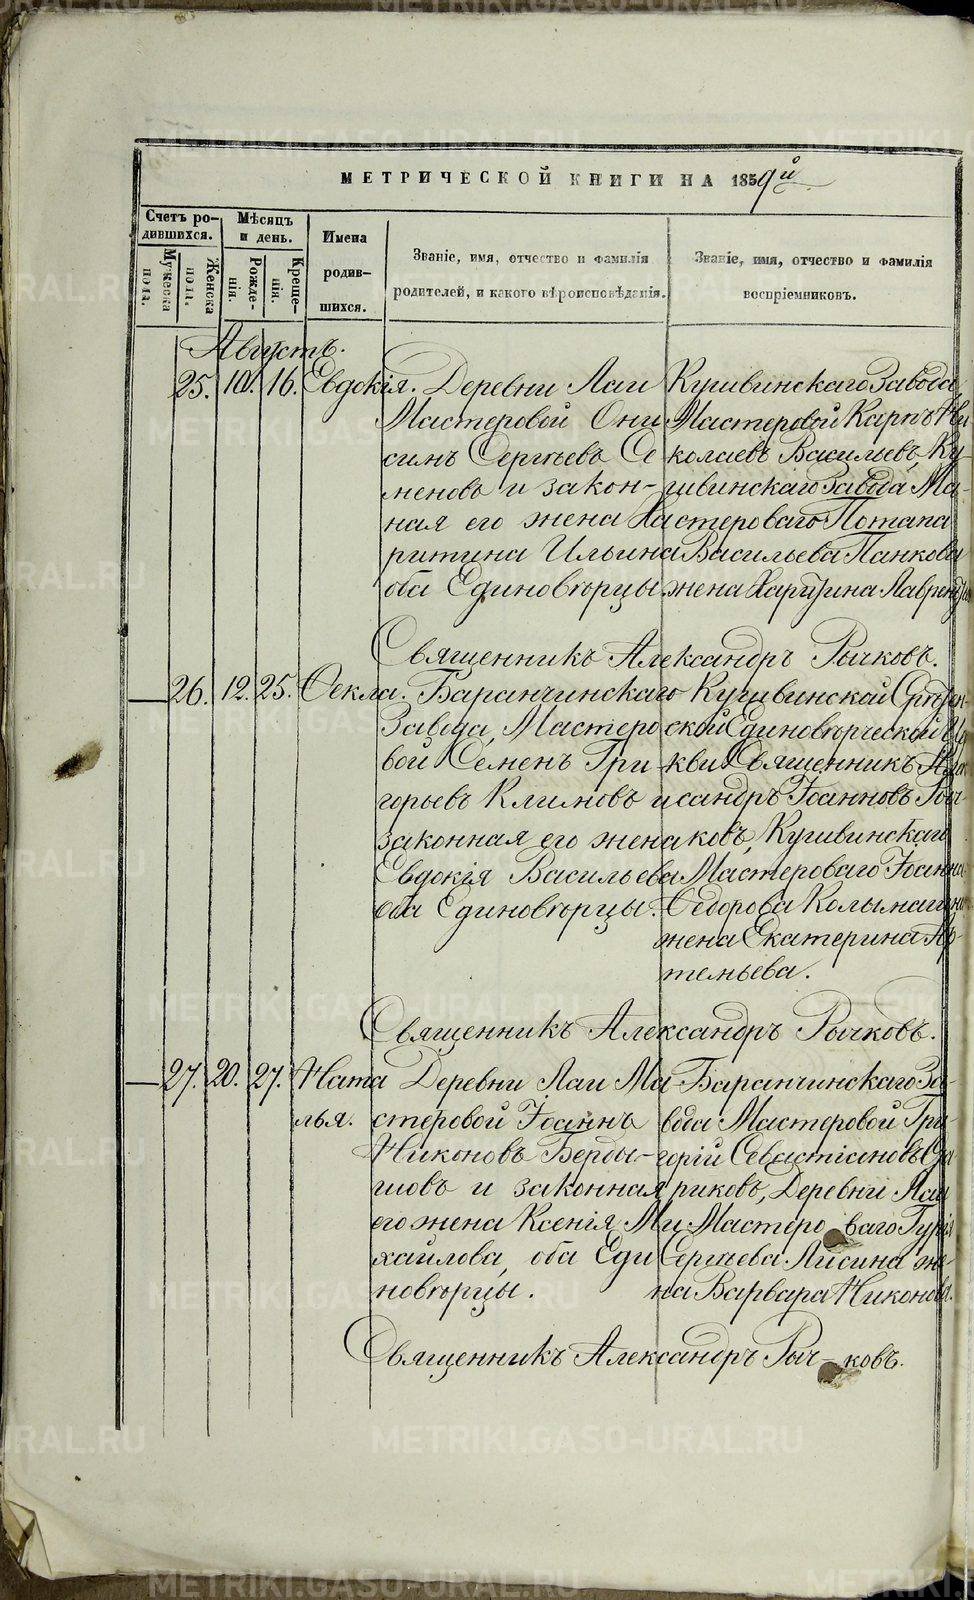 МЕТРИЧЕСКОЙ КНИГИ НА 1859й
Счетъ ро-
дившихся.
Мѣсяцъ
и день.
Имена
родив-
шихся.
Мужеска
пола.
Женска
пола.
Рожде-
нія.
Креще-
нія.
Званіе, имя, отчество и фамилія
родителей, и какого вѣроисповѣданія.
Званіе, имя, отчество и фамилія
воспріемниковъ.
Августъ.
25. 10. 16. Евдокія.
Деревни Лаи
Мастеровой Они
симъ Сергѣевъ Се
меновъ и закон-
ная его жена Ха
ритина Ильина
оба Единовѣрцы.
Кушвинскаго Завода
Мастеровой Карпъ Ни
колаевъ Васильевъ, Ку-
швинскаго Завода Ма-
стероваго Потапа
Васильева Панкова
жена Харитина Лаврентьева
Священникъ Александръ Рычковъ.
26. 12. 25. Ѳекла.
Баранчинскаго
Завода, Мастеро
вой Семенъ Гри
горьевъ Климовъ и
законная его жена
Евдокія Васильева
оба Единовѣрцы.
Кушвинской Срѣтен-
ской Единовѣрческой Це
кви Священникъ Алек
сандръ Іоанновъ Рыч-
ковъ, Кушвинскаго
Мастероваго Іоанна
Ѳедорова Колымагина
жена Екатерина Ар-
темьева.
Священникъ Александръ Рычковъ.
27. 20. 27. Ната
лья.
Деревни Лаи Ма-
стеровой Іоаннъ
Никоновъ Берды-
шовъ и законная
его жена Ксенія Ми
хайлова, оба Еди
новѣрцы.
Баранчинскаго За-
вода Мастеровой Гри-
горій Севастіановъ
риковъ, Деревни Лаи
Мастероваго Гурія
Сергѣева Лисина же-
на Варвара Никонова.
Священникъ Александръ Рыч-ковъ.
METRIKI.GASO-URAL.RU